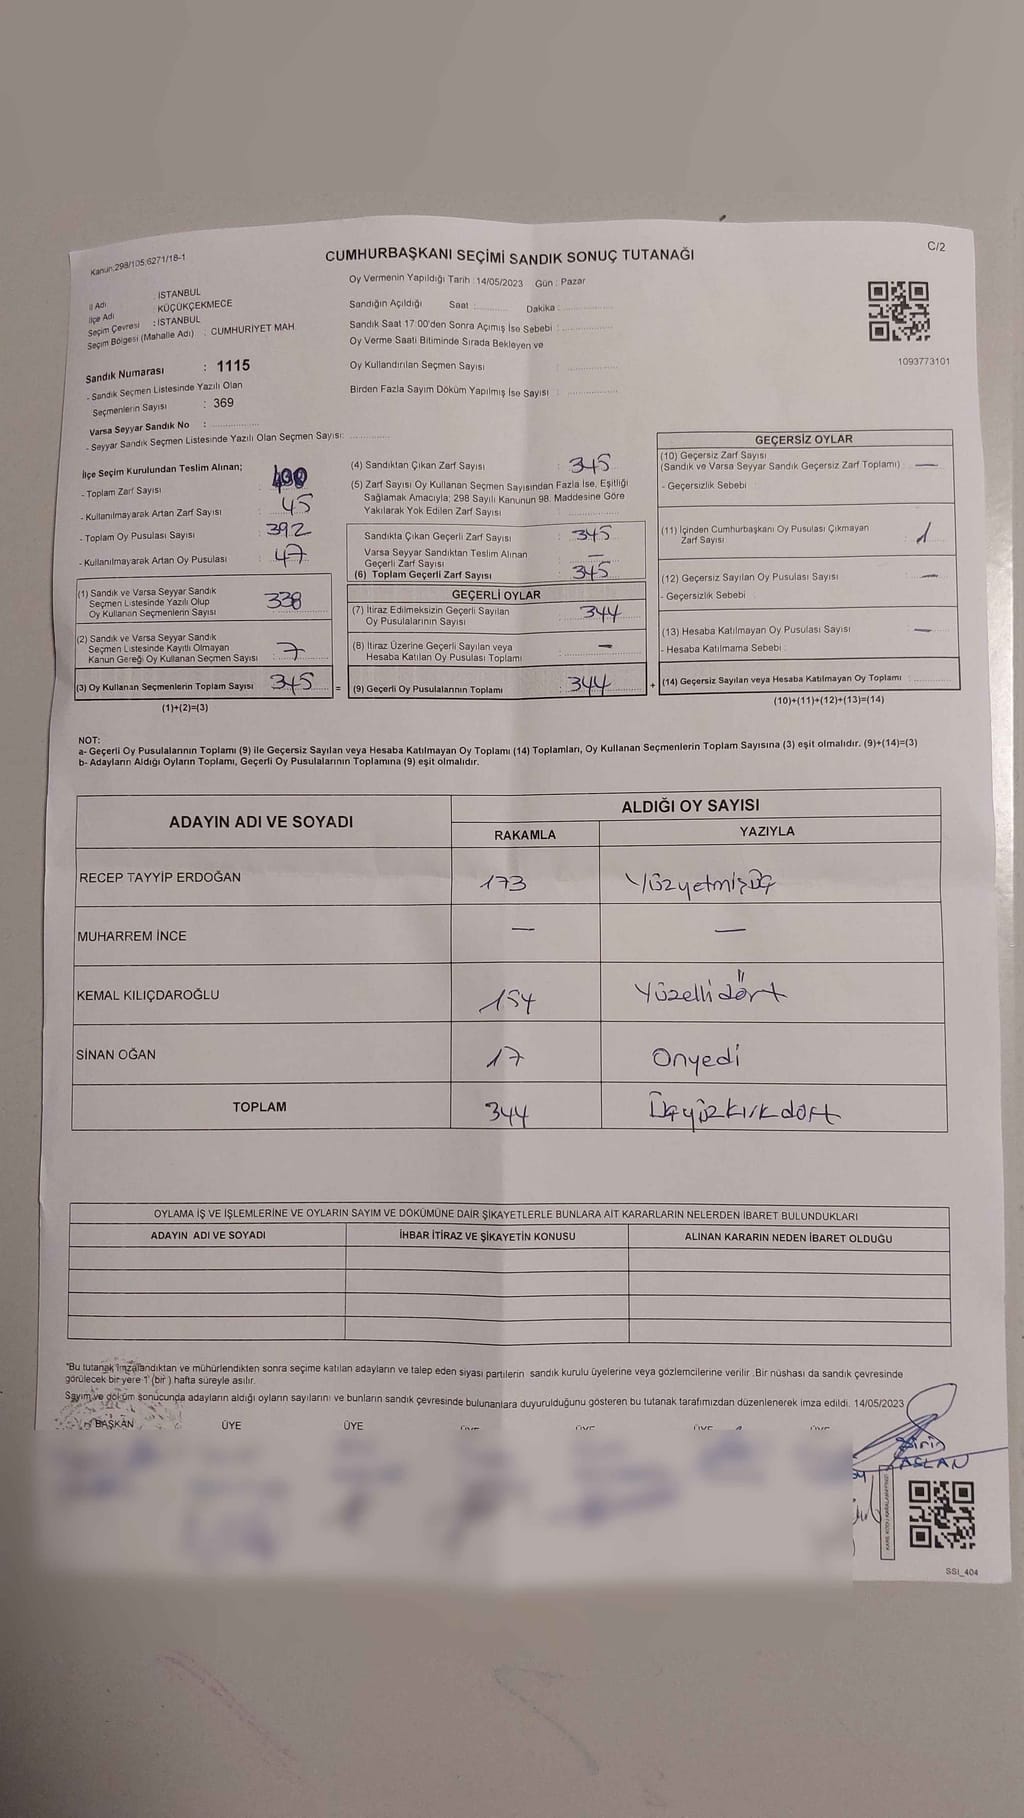 Kanun:298/105;6271/18-1
CUMHURBAŞKANI SEÇİMİ SANDIK SONUÇ TUTANAĞI
C/2
İl Adı : İSTANBUL
İlçe Adı : KÜÇÜKÇEKMECE
Seçim Çevresi : İSTANBUL
Seçim Bölgesi (Mahalle Adı) : CUMHURİYET MAH
Sandık Numarası : 1115
- Sandık Seçmen Listesinde Yazılı Olan
Seçmenlerin Sayısı : 369
Varsa Seyyar Sandık No :
- Seyyar Sandık Seçmen Listesinde Yazılı Olan Seçmen Sayısı:
Oy Vermenin Yapıldığı Tarih : 14/05/2023 Gün : Pazar
Sandığın Açıldığı Saat Dakika :
Sandık Saat 17:00'den Sonra Açımış İse Sebebi :
Oy Verme Saati Bitiminde Sırada Bekleyen ve
Oy Kullandırılan Seçmen Sayısı :
Birden Fazla Sayım Döküm Yapılmış İse Sayısı :
1093773101
İlçe Seçim Kurulundan Teslim Alınan;
- Toplam Zarf Sayısı :
- Kullanılmayarak Artan Zarf Sayısı : 45
- Toplam Oy Pusulası Sayısı : 392
- Kullanılmayarak Artan Oy Pusulası : 47
(1) Sandık ve Varsa Seyyar Sandık
Seçmen Listesinde Yazılı Olup
Oy Kullanan Seçmenlerin Sayısı : 338
(2) Sandık ve Varsa Seyyar Sandık
Seçmen Listesinde Kayıtlı Olmayan
Kanun Gereği Oy Kullanan Seçmen Sayısı : 7
(3) Oy Kullanan Seçmenlerin Toplam Sayısı : 345 =
(1)+(2)=(3)
(4) Sandıktan Çıkan Zarf Sayısı : 345
(5) Zarf Sayısı Oy Kullanan Seçmen Sayısından Fazla İse, Eşitliği
Sağlamak Amacıyla; 298 Sayılı Kanunun 98. Maddesine Göre
Yakılarak Yok Edilen Zarf Sayısı :
Sandıkta Çıkan Geçerli Zarf Sayısı : 345
Varsa Seyyar Sandıktan Teslim Alınan
Geçerli Zarf Sayısı : —
(6) Toplam Geçerli Zarf Sayısı : 345
GEÇERLİ OYLAR
(7) İtiraz Edilmeksizin Geçerli Sayılan
Oy Pusulalarının Sayısı : 344
(8) İtiraz Üzerine Geçerli Sayılan veya
Hesaba Katılan Oy Pusulası Toplamı : —
(9) Geçerli Oy Pusulalarının Toplamı : 344 +
GEÇERSİZ OYLAR
(10) Geçersiz Zarf Sayısı
(Sandık ve Varsa Seyyar Sandık Geçersiz Zarf Toplamı) : —
- Geçersizlik Sebebi :
(11) İçinden Cumhurbaşkanı Oy Pusulası Çıkmayan
Zarf Sayısı : 1
(12) Geçersiz Sayılan Oy Pusulası Sayısı : —
- Geçersizlik Sebebi :
(13) Hesaba Katılmayan Oy Pusulası Sayısı : —
- Hesaba Katılmama Sebebi :
(14) Geçersiz Sayılan veya Hesaba Katılmayan Oy Toplamı :
(10)+(11)+(12)+(13)=(14)
NOT:
a- Geçerli Oy Pusulalarının Toplamı (9) ile Geçersiz Sayılan veya Hesaba Katılmayan Oy Toplamı (14) Toplamları, Oy Kullanan Seçmenlerin Toplam Sayısına (3) eşit olmalıdır. (9)+(14)=(3)
b- Adayların Aldığı Oyların Toplamı, Geçerli Oy Pusulalarının Toplamına (9) eşit olmalıdır.
ADAYIN ADI VE SOYADI
ALDIĞI OY SAYISI
RAKAMLA YAZIYLA
RECEP TAYYİP ERDOĞAN 173 Yüzyetmişüç
MUHARREM İNCE — —
KEMAL KILIÇDAROĞLU 154 Yüzellidört
SİNAN OĞAN 17 Onyedi
TOPLAM 344 Üçyüzkırkdört
OYLAMA İŞ VE İŞLEMLERİNE VE OYLARIN SAYIM VE DÖKÜMÜNE DAİR ŞİKAYETLERLE BUNLARA AİT KARARLARIN NELERDEN İBARET BULUNDUKLARI
ADAYIN ADI VE SOYADI İHBAR İTİRAZ VE ŞİKAYETİN KONUSU ALINAN KARARIN NEDEN İBARET OLDUĞU
"Bu tutanak imzalandıktan ve mühürlendikten sonra seçime katılan adayların ve talep eden siyasi partilerin sandık kurulu üyelerine veya gözlemcilerine verilir .Bir nüshası da sandık çevresinde
görülecek bir yere 1 (bir ) hafta süreyle asılır.
Sayım ve döküm sonucunda adayların aldığı oyların sayılarını ve bunların sandık çevresinde bulunanlara duyurulduğunu gösteren bu tutanak tarafımızdan düzenlenerek imza edildi. 14/05/2023
BAŞKAN ÜYE ÜYE
ASLAN
SSI_404